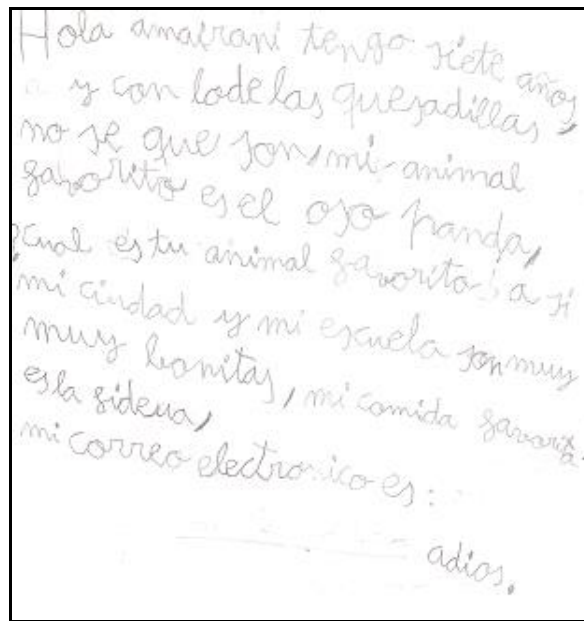 Hola amairani tengo siete años,
y con lo de las quesadillas,
no se que son, mi animal
favorito es el oso panda,
¿cual es tu animal favorito? a si
mi ciudad y mi escuela son muy
muy bonitas, mi comida favorita
es la fideua,
mi correo electronico es:
adios.